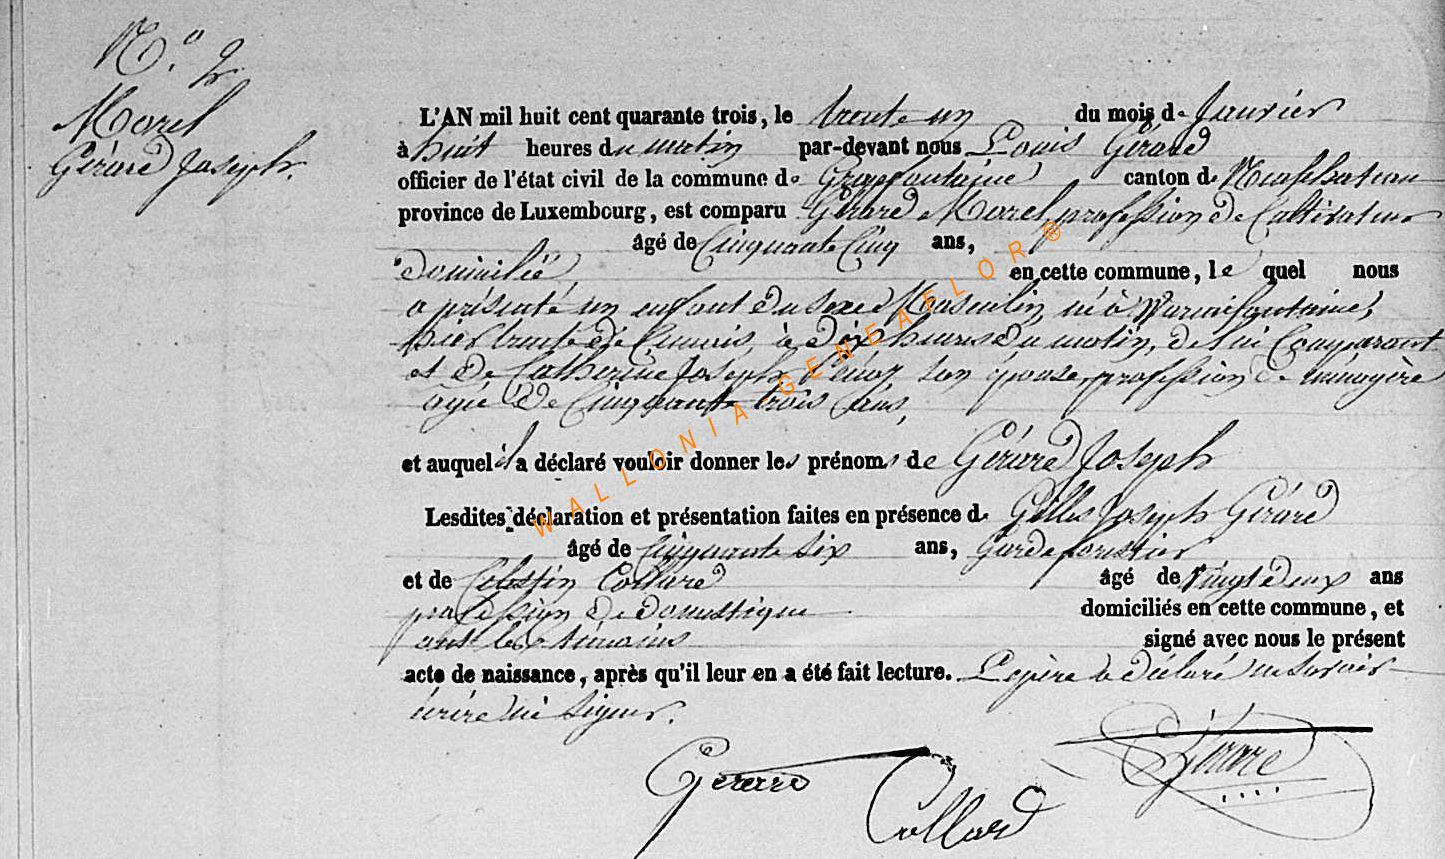 N.º 2
Morel
Gérard Joseph.
L'AN mil huit cent quarante trois, le trente un du mois de Janvier
à huit heures du matin par-devant nous Louis Gérard
officier de l'état civil de la commune de Grapfontaine canton de Neufchateau
province de Luxembourg, est comparu Gérard Morel, profession de Cultivateur
âgé de Cinquante Cinq ans,
domicilié en cette commune, lequel nous
a présenté un enfant du sexe Masculin, né à Warmifontaine,
hier trente de ce mois à dix heures du matin, de lui Comparant
et de Catherine Joseph son épouse, profession de ménagère
agée de Cinquante trois ans,
et auquel il a déclaré vouloir donner les prénoms de Gérard Joseph
Lesdites déclaration et présentation faites en présence de Gilles Joseph Gérard
âgé de Cinquante six ans, Garde forestier
et de Célestin Collard âgé de vingt deux ans
profession de domestique domiciliés en cette commune, et
ont les témoins signé avec nous le présent
acte de naissance, après qu'il leur en a été fait lecture. Le père a déclaré ne savoir
écrire ni signer.
Gerard
Collard
Gérard
WALLONIA-GENEAFLOR®